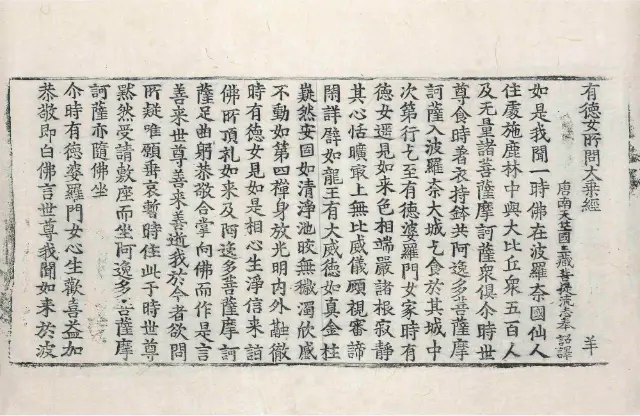 有德女所問大乗經
唐南天竺國三藏菩提流志奉 詔譯
羊
如是我聞一時佛在波羅奈國仙人
住處施鹿林中與大比丘衆五百人
及无量諸菩薩摩訶薩衆俱尒時世
尊食時著衣持鉢共阿逸多菩薩摩
訶薩入波羅奈大城乞食於其城中
次第行乞至有德婆羅門女家時有
德女遥見如来色相端嚴諸根寂静
其心恬曠最上無比威儀顧視審諦
閑詳譬如龍王有大威德如真金柱
嶷然安固如清淨池皎無穢濁欣慼
不動如第四禪身放光明内外融徹
時有德女見如是相心生淨信来詣
佛所頂礼如来及阿逸多菩薩摩訶
薩足曲躬恭敬合掌向佛而作是言
善来世尊善来善逝我於今者欲問
所疑唯願垂哀暫時住此于時世尊
黙然受請敷座而坐阿逸多菩薩摩
訶薩亦隨佛坐
尒時有德婆羅門女心生歡喜益加
恭敬即白佛言世尊我聞如来於波